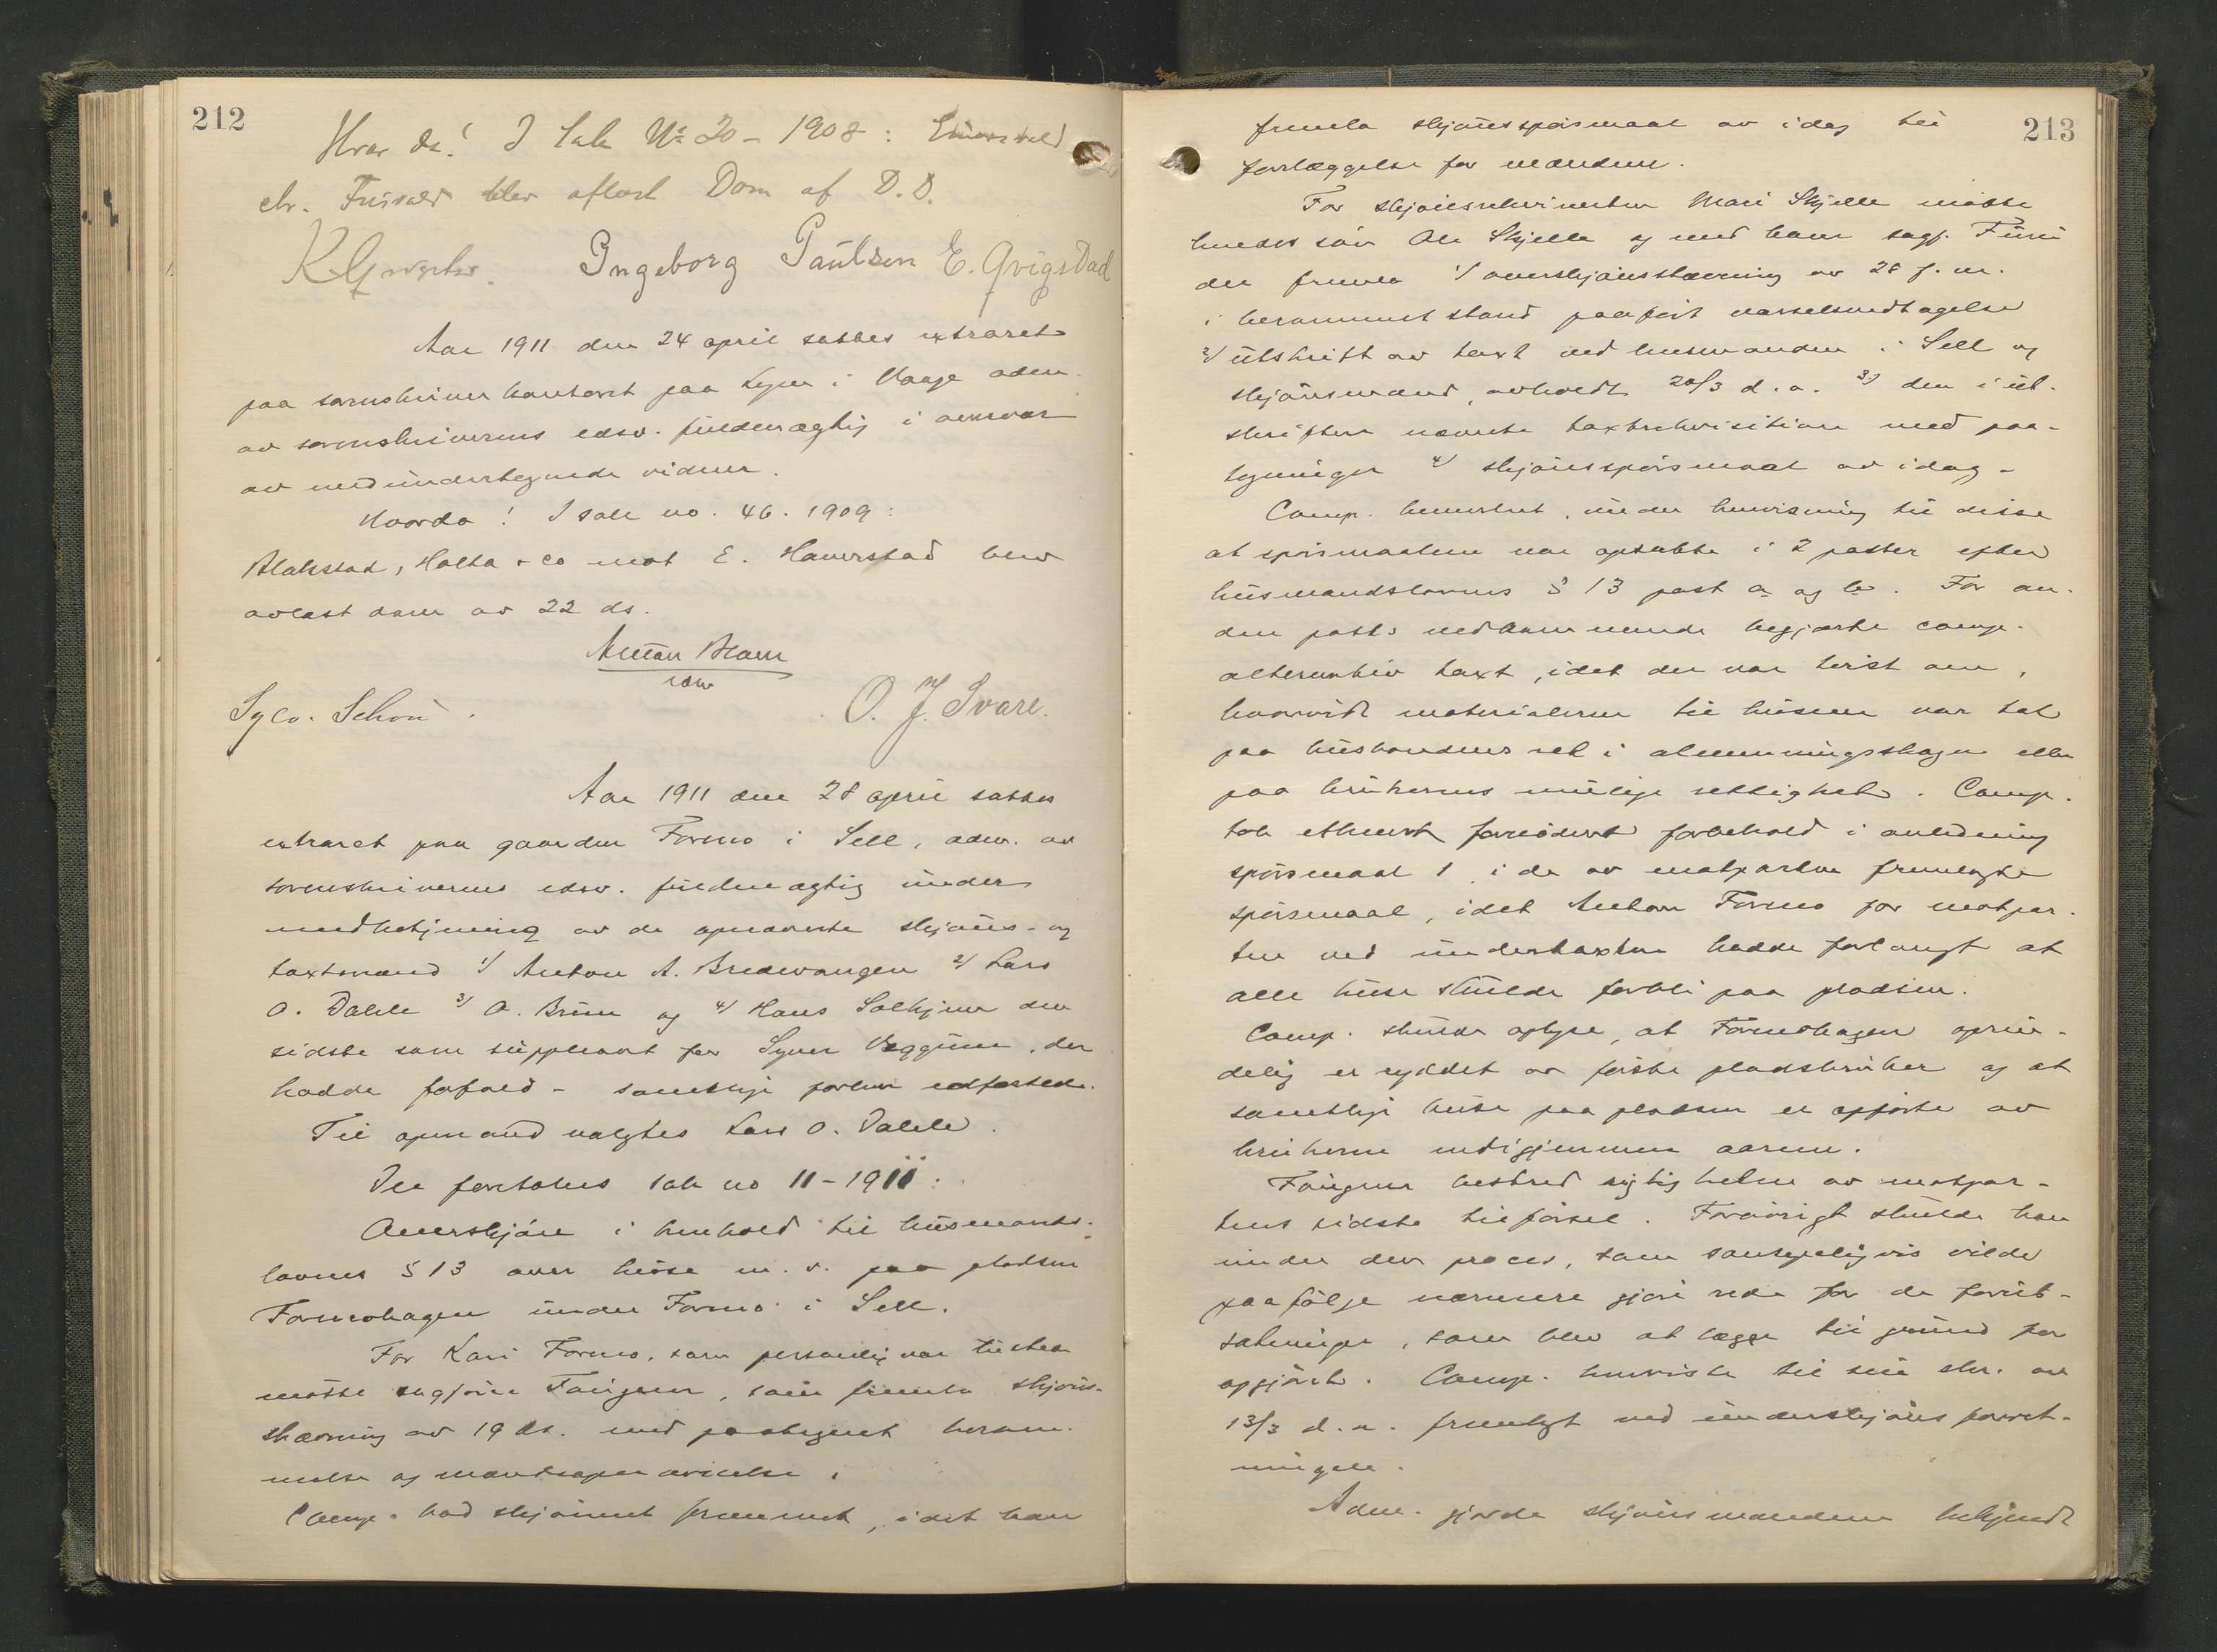 212
Hvor da! I Sak No 20 - 1908:
ctr. blev aflæst Dom af D.D.
Ingeborg Paulsen E. Qvigstad
Aar 1911 den 24 april sattes extraret
paa sorenskriverkontoret paa i Vaage adm.
av sorenskriverens edsv. fuldmægtig i nærvær
av medundertegnede vidner.
Hvorda! I sak no. 46. 1909:
Blakstad, Holta & Co mot E. Haverstad blev
avlæst dom av 22 ds.
Anton Blom
edsv
O. J. Svare.
Aar 1911 den 28 april sattes
extraret paa gaarden Formo i Sell, adm. av
sorenskriverens edsv. fuldmægtig under
medbetjening av de opnævnte skjøns- og
taxtmænd 1/ Anton A. Bredevangen 2/ Lars
O. Dahle 3/ O. Bruun og 4/ Hans Solhjem den
sidste som suppleant for Syver Veggum, der
hadde forfald - samtlige forhen edfæstede.
Til opmand valgtes Lars O. Dahle.
Der foretokes sak no 11 - 1911:
Overskjøn i henhold til husmands-
lovens § 13 over huse m. v. paa pladsen
Formohagen under Formo i Sell.
For Kari Formo, som personlig var tilstede
møtte sagfører Faugner, som fremla skjøns-
stævning av 19 ds. med paategnet beram-
melse og mandsopnævnelse.
Comp. bad skjønnet fremmet, idet han
213
fremla skjønsspørsmaal av idag til
forelæggelse for mændene.
For skjønsrekvirenten Mari Skjelle møtte
hendes søn Ole Skjelle og med ham sagf. Furu
der fremla 1/ overskjønsstævning av 28 f. m.
i berammet stand paaført varselsvedtagelse
2/ utskrift av taxt ved lensmanden i Sell og
skjønsmænd, avholdt 20/3 d. a. 3) den i ut-
skriften nævnte taxtrekvisition med paa-
tegninger 4/ skjønsspørsmaal av idag -
Comp. bemerket, under henvisning til disse
at spørsmaalene var opsatte i 2 poster efter
husmandslovens § 13 post a og b. For an-
den posts vedkommende begjærte comp.
alternativ taxt, idet der var tvist om,
hvorvidt materialerne til husene var tat
paa husbondens ret i almenningsskogen eller
paa brukerens mulige rettighet. Comp.
tok ethvert fornødent forbehold i anledning
spørsmaal 1 i de av motparten fremlagte
spørsmaal, idet Anton Formo for motpar-
ten ved undertaxten hadde forlangt at
alle huse skulde forbli paa pladsen.
Comp. skulde oplyse, at Formohagen oprin-
delig er ryddet av første pladsbruker og at
samtlige huse paa pladsen er opførte av
brukerne indigjennem aarene.
Faugner bestred rigtigheten av motpar-
tens sidste tilførsel. Forøvrigt skulde han
under den proces, som sansynligvis vilde
paafølge nærmere gjøre rede for de forut-
sætninger, som blev at lægge til grund for
opgjøret. Comp. henviste til sin skr. av
13/3 d. a. fremlagt ved underskjønsforret-
ningen.
Adm. gjorde skjønsmændene bekjendt